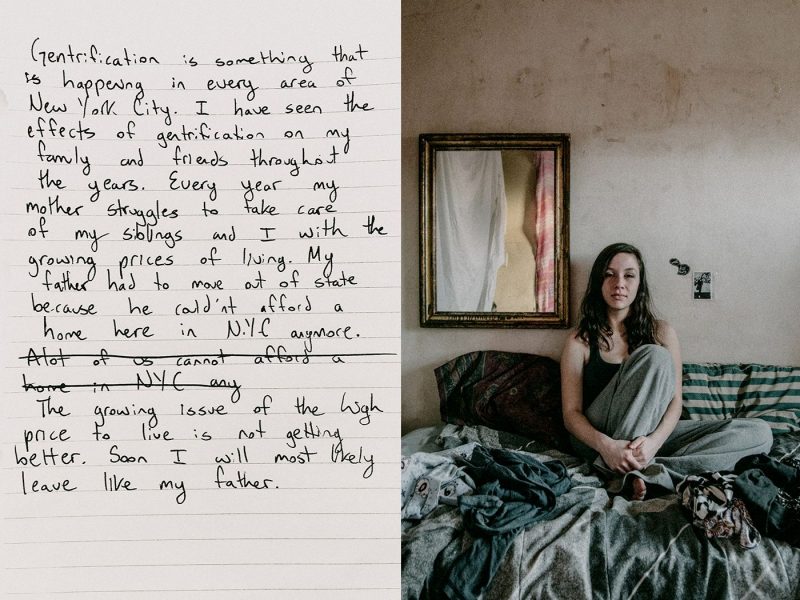 Gentrification is something that
is happening in every area of
New York City. I have seen the
effects of gentrification on my
family and friends throughout
the years. Every year my
mother struggles to take care
of my siblings and I with the
growing prices of living. My
father had to move out of state
because he could'nt afford a
home here in N.Y.C anymore.
Alot of us cannot afford a
home in NYC any
The growing issue of the high
price to live is not getting
better. Soon I will most likely
leave like my father.